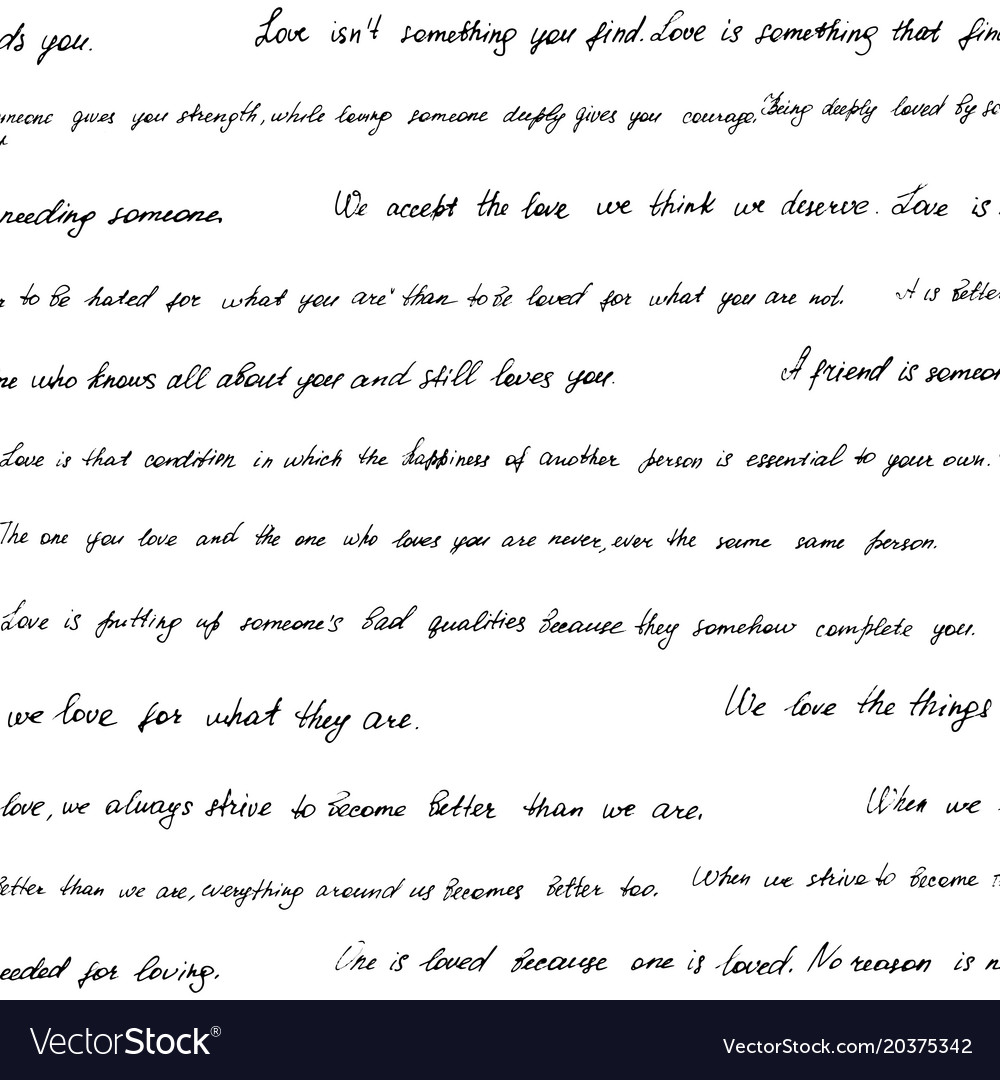 ds you. Love isn't something you find. Love is something that find
meone gives you strength, while loving someone deeply gives you courage. Being deeply loved by so
needing someone. We accept the love we think we deserve. Love is
r to be hated for what you are than to be loved for what you are not. It is better
ne who knows all about you and still loves you. A friend is someon
Love is that condition in which the happiness of another person is essential to your own.
The one you love and the one who loves you are never, ever the same same person.
Love is putting up someone's bad qualities because they somehow complete you.
we love for what they are. We love the things
love, we always strive to become better than we are. When we
better than we are, everything around us becomes better too. When we strive to become
eeded for loving. One is loved because one is loved. No reason is n
VectorStock® VectorStock.com/20375342